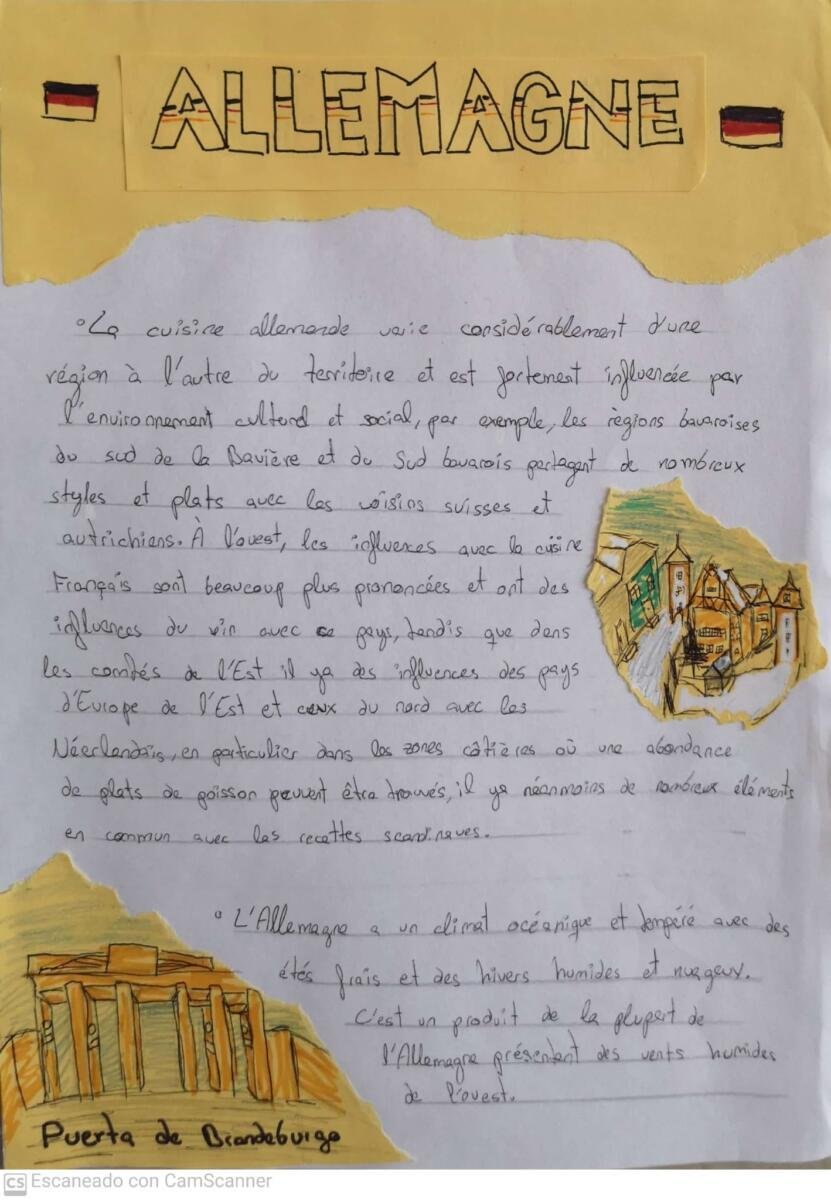 ALLEMAGNE
°La cuisine allemande varie considérablement d'une
région à l'autre du territoire et est fortement influencée par
l'environnement culturel et social, par exemple, les règions bavaroises
du sud de la Bavière et du Sud bavarois partagent de nombreux
styles et plats avec les voisins suisses et
autrichiens. À l'ouest, les influences avec la cuisine
Français sont beaucoup plus prononcées et ont des
influences du vin avec ce pays, tandis que dans
les comtés de l'Est il ya des influences des pays
d'Europe de l'Est et ceux du nord avec les
Néerlandais, en particulier dans les zones côtières où une abondance
de plats de poisson peuvent être trouvés, il ya néanmoins de nombreux éléments
en commun avec les recettes scandinaves.
°L'Allemagne a un climat océanique et tempéré avec des
étés frais et des hivers humides et nuageux.
C'est un produit de la plupart de
l'Allemagne présentent des vents humides
de l'ouest.
Puerta de Brandeburgo
CS Escaneado con CamScanner